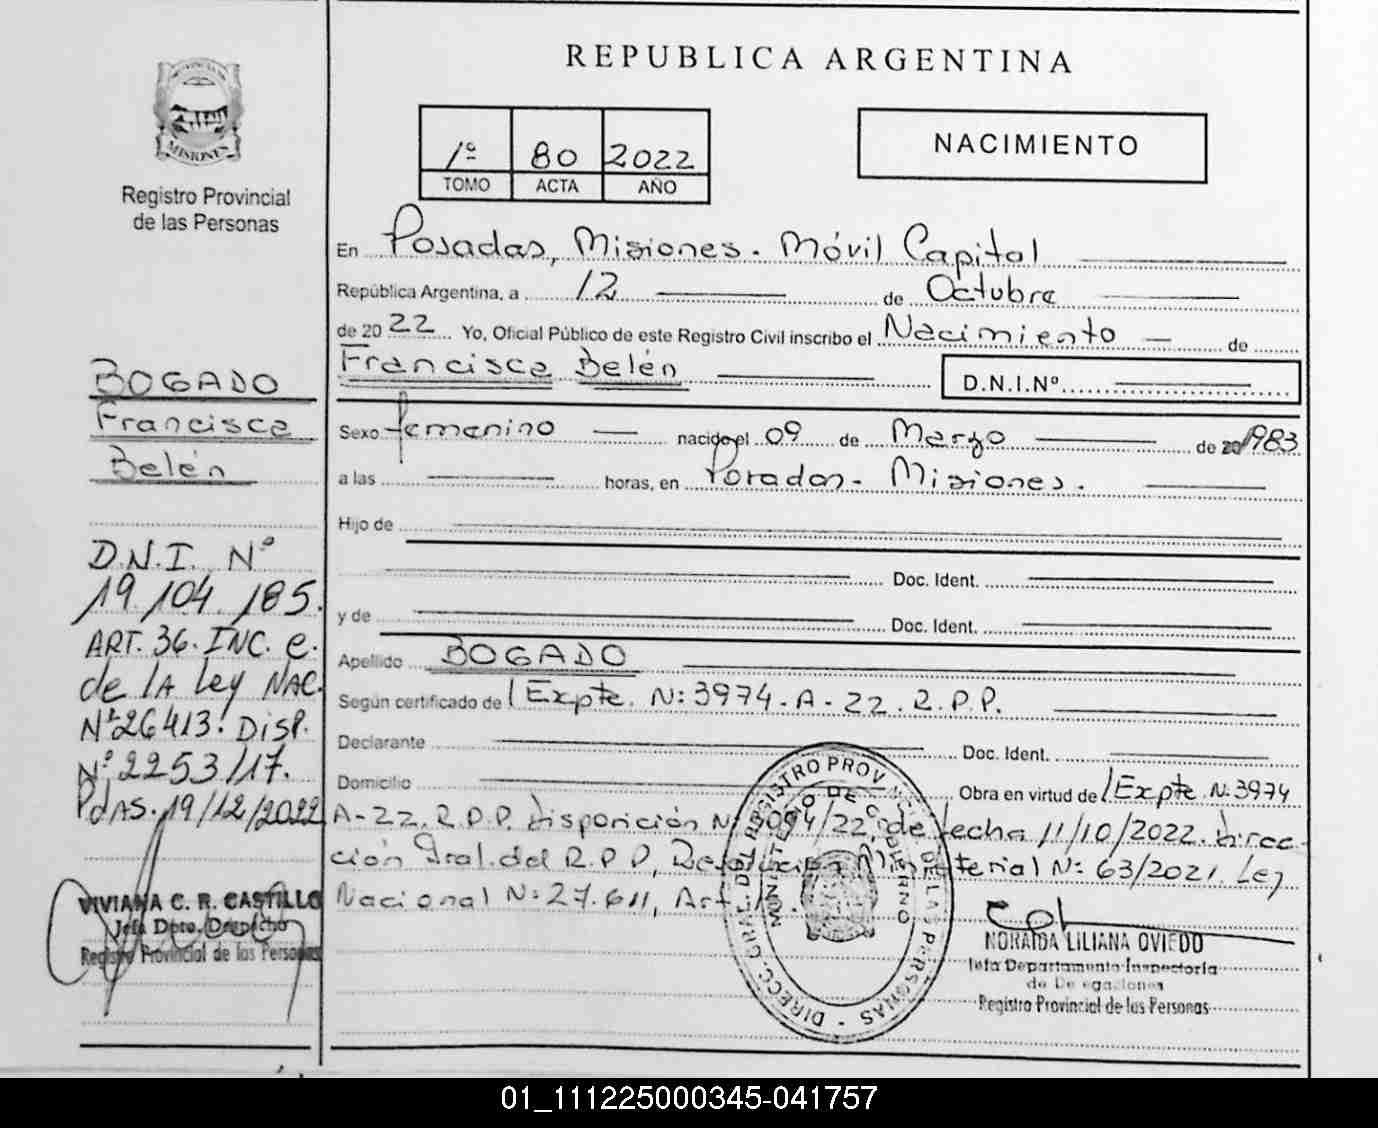 PROVINCIA DE
MISIONES
Registro Provincial
de las Personas
BOGADO
Francisca
Belén
D.N.I. Nº
19.104.185.
ART. 36. INC. e.
de la Ley NAC.
Nº 26413. DISP.
Nº 2253/17.
Pdas. 19/12/2022
VIVIANA C. R. CASTILLO
Jefa Dpto. Despacho
Registro Provincial de las Personas
REPUBLICA ARGENTINA
1º 80 2022
TOMO ACTA AÑO
NACIMIENTO
En Posadas, Misiones. Móvil Capital
República Argentina, a 12 de Octubre
de 2022 Yo, Oficial Público de este Registro Civil inscribo el Nacimiento de
Francisca Belén D.N.I.Nº
Sexo femenino nacido el 09 de Marzo de 1983
a las horas, en Posadas - Misiones.
Hijo de
Doc. Ident.
y de Doc. Ident.
Apellido BOGADO
Según certificado de Expte. N: 3974-A-22.R.P.P.
Declarante Doc. Ident.
Domicilio Obra en virtud de Expte N: 3974
A-22.R.P.P. Disposición Nº 3094/22, de fecha 11/10/2022. Direc-
ción Gral. del R.P.P, Resolución Ministerial Nº 63/2021. Ley
Nacional N: 27.611, Art.
DIRECC. GRAL. DEL REGISTRO PROVINCIAL DE LAS PERSONAS
MINISTERIO DE GOBIERNO
NORAIDA LILIANA OVIEDO
Jefa Departamento Inspectoría
de Delegaciones
Registro Provincial de las Personas
01_111225000345-041757